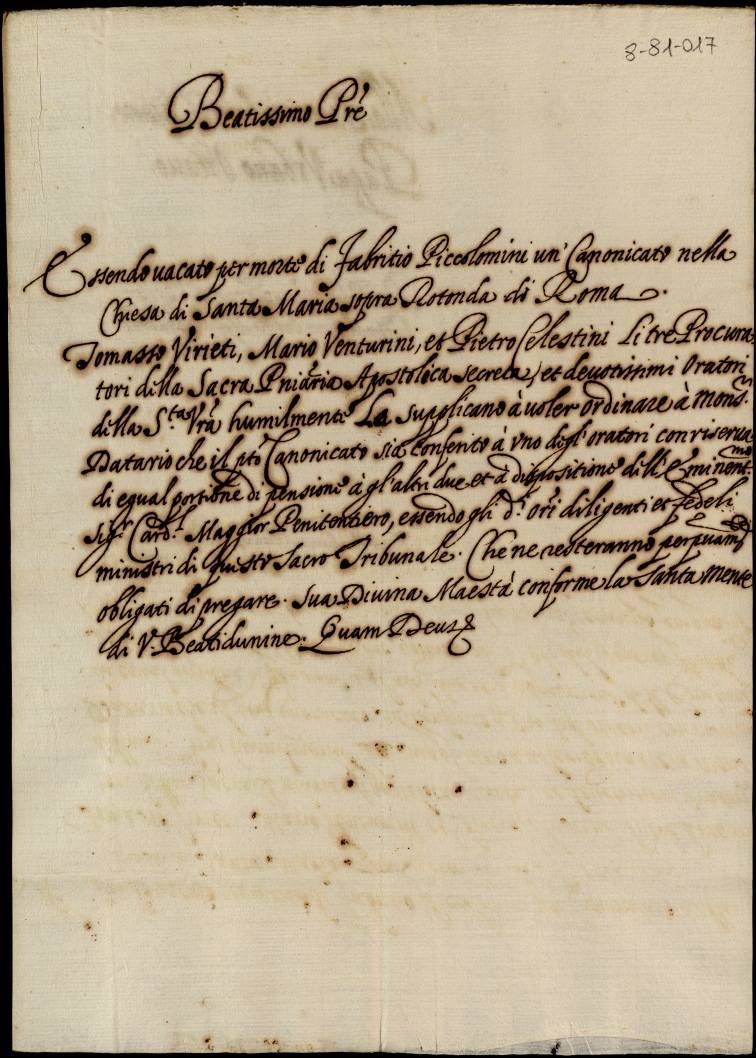 8-81-017
Beatissimo Prê
Essendo vacato per morte di Fabritio Piccolomini un' Canonicato nella
Chiesa di Santa Maria sopra Rotonda di Roma.
Tomasso Virieti, Mario Venturini, et Pietro Celestini li tre Procura
tori della Sacra Pniaria Apostolica secreta, et devotissimi Oratori
della S.ta Vrâ humilmente La supplicano à voler ordinare à Mons.r
Datario che il pto Canonicato sia conferito à uno degl'oratori con riserva
di egual portione di pensione à gl'altri due et à dispositione dell' Eminent.mo
sig.r Card.l Maggior Penitentiero, essendo gli d.i ori diligenti et fedeli
ministri di questo Sacro Tribunale. Che ne resteranno
obligati di pregare. sua Divina Maestà conforme la santa mente
di V. Beatidunine. Quam Deus &